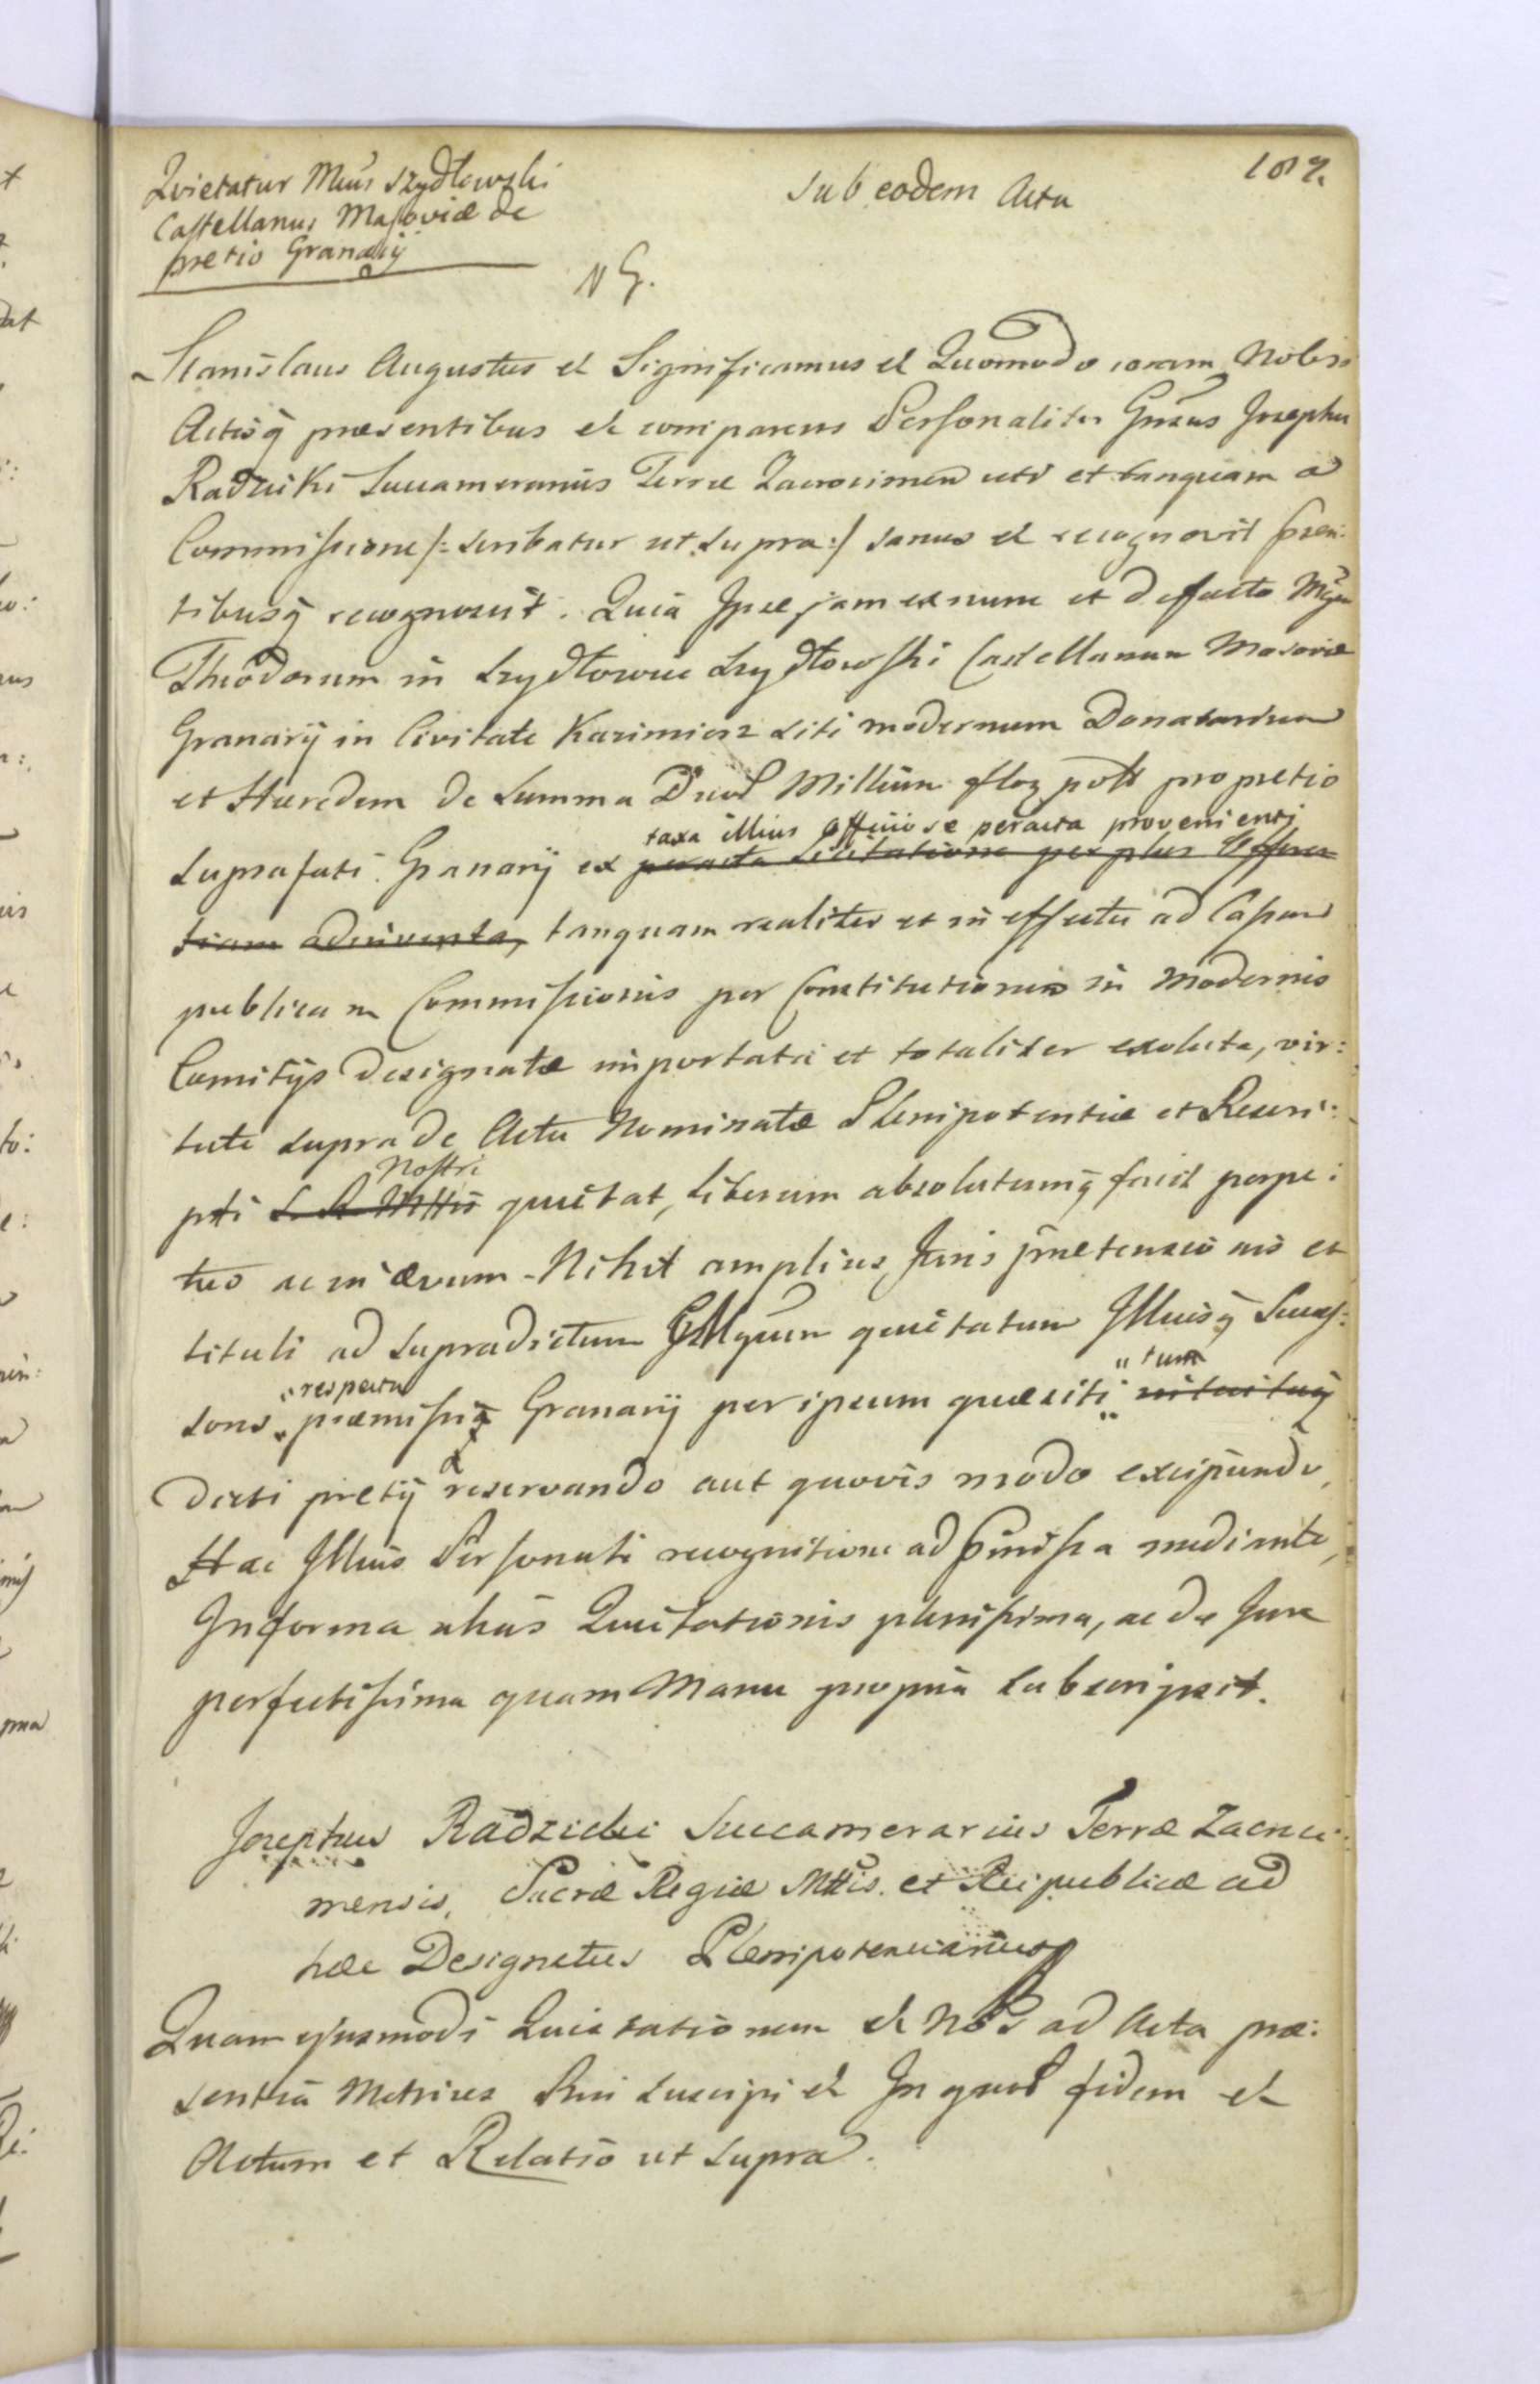 Quietatur Mcus Szydłowski
Castellanus Masoviæ de
pretio Granarÿ
Sub eodem Actu
107.
NG.
Stanislaus Augustus et Significamus et Quomodo coram Nobis
Actisq̃ præsentibus et comparens Personaliter Gnsus Josephus
Radzicki Succamerarius Terræ Zacrocimen uti et tanquam a
Commissione /: scribatur ut supra :/ sanus et recognovit præn:
tibusq̃ recognoscit. Quia Ipse jam ex nunc et de facto Mgcum
Theodorum in Szydłowiec Szydłowski Castellanum Masoviæ
Granarÿ in Civitate Kazimierz siti modernum Donatarium
et Hæredem de Summa Duor Millium floz poll pro pretio
taxa illius officiose peracta provenienti
suprafati Granarÿ ex peracta licitatione per plus Offeren
tiam adinventa, tanquam realiter et in effectu ad Cassam
publicam Commissionis per Constitutionem in Modernis
Comitÿs designatæ importata et totaliter exoluta, vir:
tute supra de Actu Nominatæ Plenipotentiæ et Rescri:
Nostri
pti S. R. Mttis quietat, liberum absolutumq̃ facit perpe:
tuo ac in ævum. Nihil amplius Juris prætensionis et
tituli ad supradictum Mgcum quietatum Illiusq̃ Success:
respectu
"tum
sores præmissiq̃ Granarÿ per ipsum quæsiti
dicti pretÿ reservando aut quovis modo excipiendo,
Hac Illius Personali recognitione ad præmissa mediante,
In forma alias Quietationis plenissima, ac de Jure
perfectissima quam Manu propria subscripsit.
Josephus Radzicki Succamerarius Terræ Zacroci:
mensis, Sacræ Regiæ Mttis. et Reipublicæ ad
hæc Designatus Plenipotenciarius
Quam ejusmodi Quietationem et Nos ad Acta præ:
sentia Metrices Rni suscipi et In quor fidem et
Actum et Relatio ut supra.